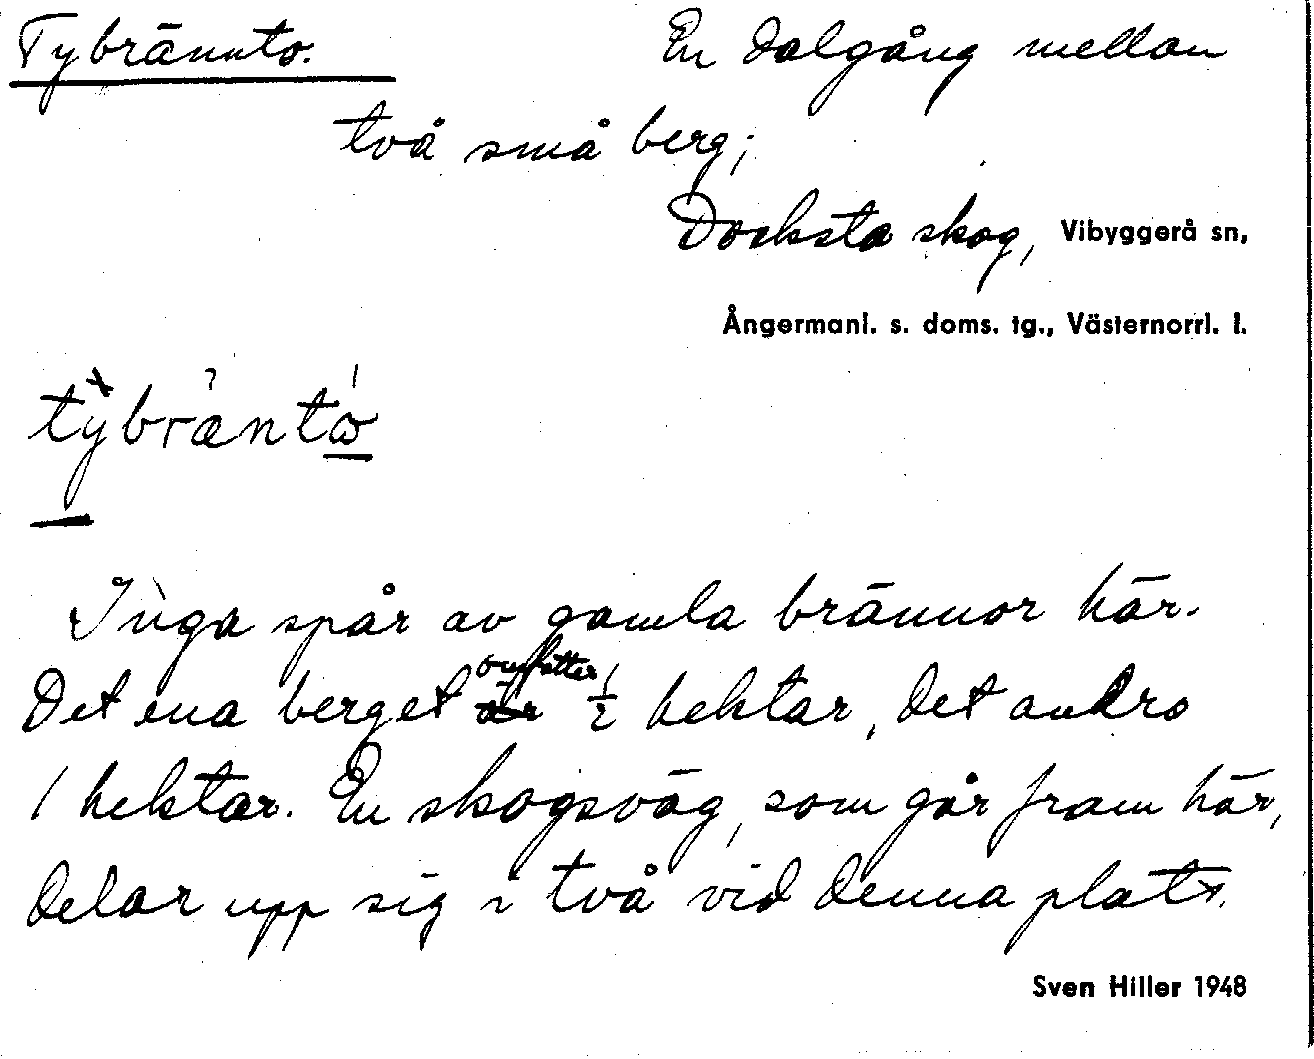 Tybrännto. En dalgång mellan
två små berg;
Docksta skog, Vibyggerå sn,
Ångermanl. s. doms. tg., Västernorrl. l.
Inga spår av gamla brännor här.
Det ena berget är omfatter 1/2 hektar, det andra
1 hektar. En skogsväg, som går fram här,
delar upp sig i två vid denna plats.
Sven Hiller 1948